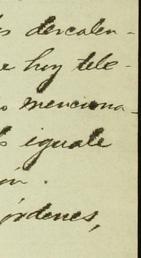 descalen-
e hoy tele-
menciona-
iguale
órdenes,